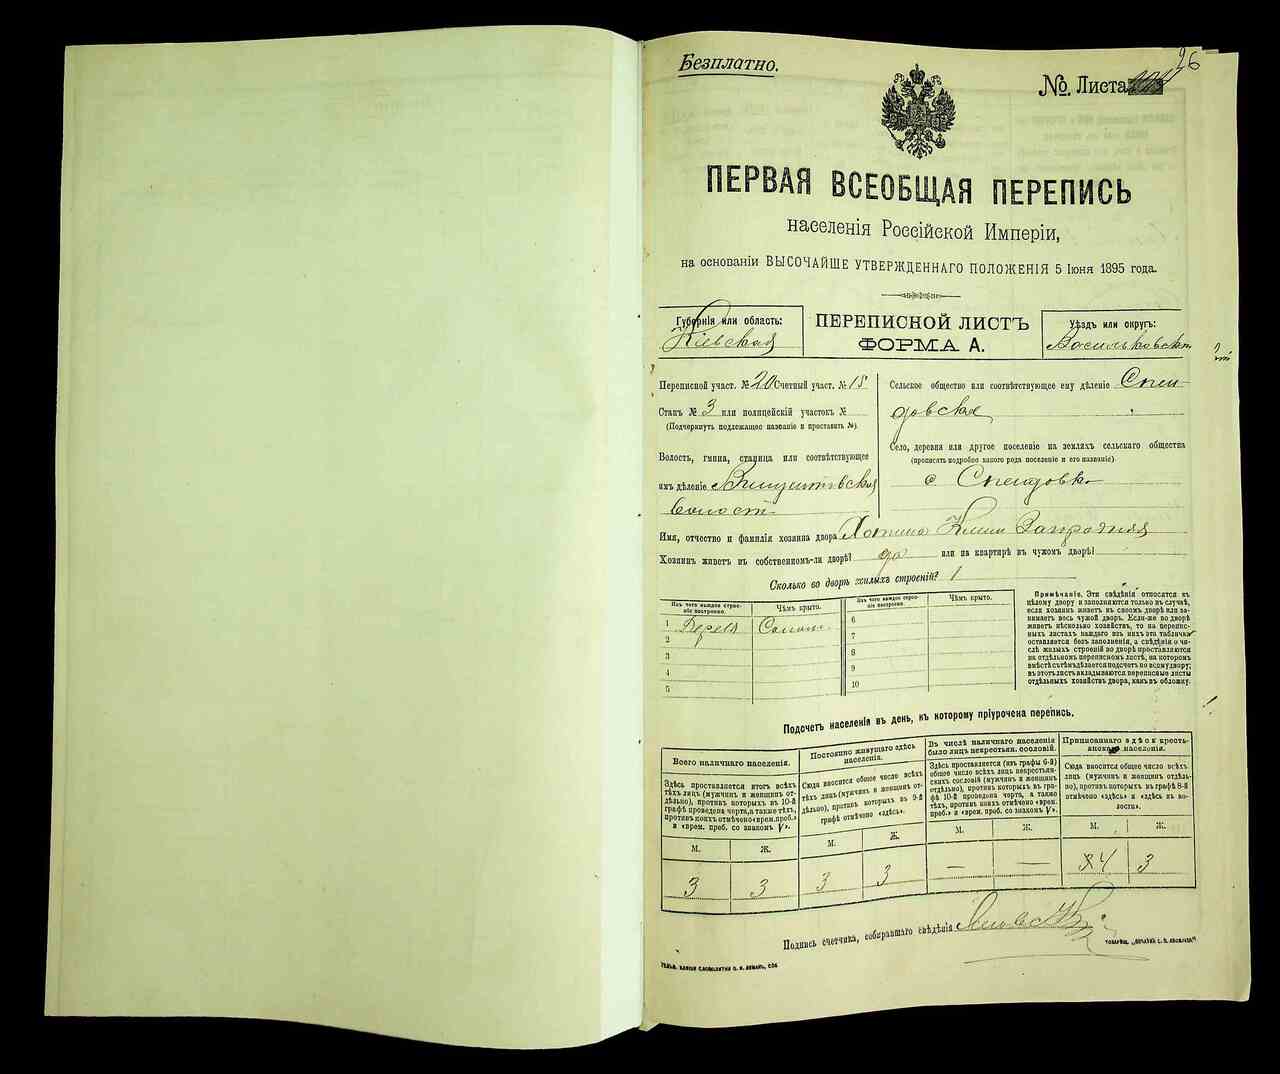 Безплатно.
26
№. Листа
ПЕРВАЯ ВСЕОБЩАЯ ПЕРЕПИСЬ
населенія Россійской Имперіи,
на основаніи ВЫСОЧАЙШЕ УТВЕРЖДЕННАГО ПОЛОЖЕНІЯ 5 Іюня 1895 года.
Губернія или область:
Кіевская
ПЕРЕПИСНОЙ ЛИСТЪ
ФОРМА А.
Уѣздъ или округъ:
Васильковскій
Переписной участ. № 20 Счетный участ. № 15
Станъ № 3 или полицейскій участокъ №
(Подчеркнуть подлежащее названіе и проставить №).
Волость, гмина, станица или соотвѣтствующее
имъ дѣленіе
волость
Сельское общество или соотвѣтствующее ему дѣленіе
Село, деревня или другое поселеніе на земляхъ сельскаго общества
(прописать подробно какого рода поселеніе и его названіе)
с
Имя, отчество и фамилія хозяина двора
Хозяинъ живетъ въ собственномъ-ли дворѣ? да или на квартирѣ въ чужомъ дворѣ?
Сколько во дворѣ жилыхъ строеній? 1
Изъ чего каждое строеніе построено.
Чѣмъ крыто.
Изъ чего каждое строеніе построено.
Чѣмъ крыто.
1 Дерева Солом.
2
3
4
5
6
7
8
9
10
Примѣчаніе. Эти свѣдѣнія относятся къ
цѣлому двору и заполняются только въ случаѣ,
если хозяинъ живетъ въ своемъ дворѣ или занимаетъ
весь чужой дворъ. Если-же во дворѣ
живетъ нѣсколько хозяйствъ, то на переписныхъ
листахъ каждаго изъ нихъ эта табличка
оставляется безъ заполненія, а свѣдѣнія о числѣ
жилыхъ строеній во дворѣ проставляются
на отдѣльномъ переписномъ листѣ, на которомъ
вмѣстѣ съ тѣмъ дѣлается подсчетъ по всему двору;
въ этотъ листъ вкладываются переписные листы
отдѣльныхъ хозяйствъ двора, какъ въ обложку.
Подсчетъ населенія въ день, къ которому пріурочена перепись.
Всего наличнаго населенія.
Здѣсь проставляется итогъ всѣхъ
тѣхъ лицъ (мужчинъ и женщинъ отдѣльно),
противъ которыхъ въ 10-й
графѣ проведена черта, а также тѣхъ,
противъ коихъ отмѣчено «врем. проб.»
и «врем. проб. со знакомъ V».
М.
Ж.
3
3
Постоянно живущаго здѣсь
населенія.
Сюда вносится общее число всѣхъ
тѣхъ лицъ (мужчинъ и женщинъ отдѣльно),
противъ которыхъ въ 9-й
графѣ отмѣчено «здѣсь».
М.
Ж.
3
3
Въ числѣ наличнаго населенія
было лицъ некрестьян. сословій.
Здѣсь проставляется (изъ графы 6-й)
общее число всѣхъ лицъ некрестьянскихъ
сословій (мужчинъ и женщинъ
отдѣльно), противъ которыхъ въ графѣ
10-й проведена черта, а также
тѣхъ, противъ коихъ отмѣчено «врем.
проб.» и «врем. проб. со знакомъ V».
М.
Ж.
—
—
Приписаннаго здѣсь крестьянскаго
населенія.
Сюда вносится общее число всѣхъ
лицъ (мужчинъ и женщинъ отдѣльно),
противъ которыхъ въ графѣ 8-й
отмѣчено «здѣсь» и «здѣсь въ волости».
М.
Ж.
4
3
Подпись счетчика, собиравшаго свѣдѣнія